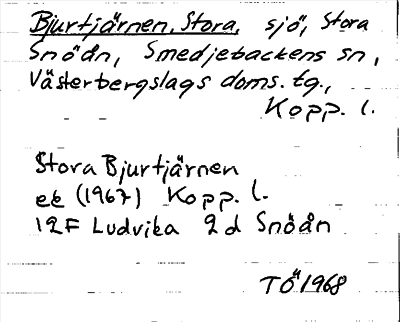 Bjurtjärnen, Stora, sjö, Stora
Snöån, Smedjebackens sn,
Västerbergslags doms. tg.,
Kopp. l.
Stora Bjurtjärnen
ek (1967) Kopp. l.
12F Ludvika 2d Snöån
TÖ 1968